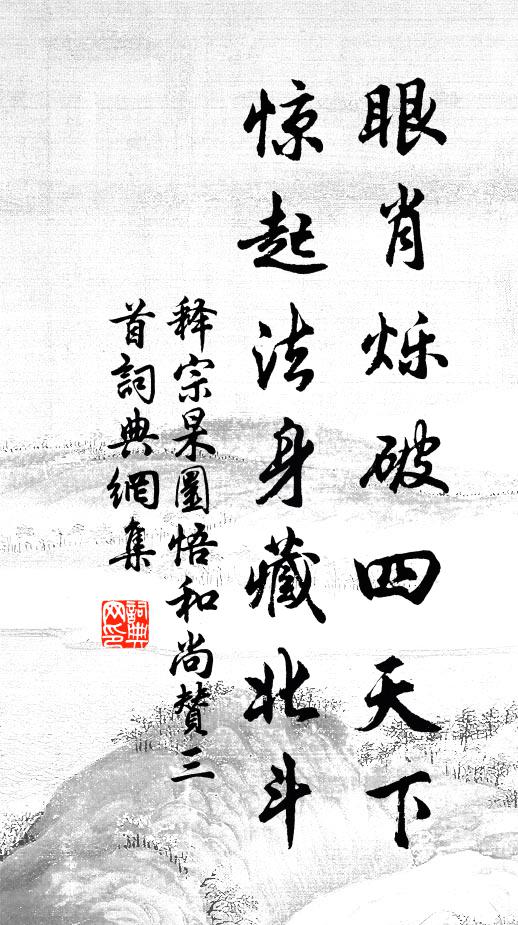 眼肖烁破四天下
惊起法身藏北斗
释宗杲圜悟和尚赞三
首詞典網集
詞典网印